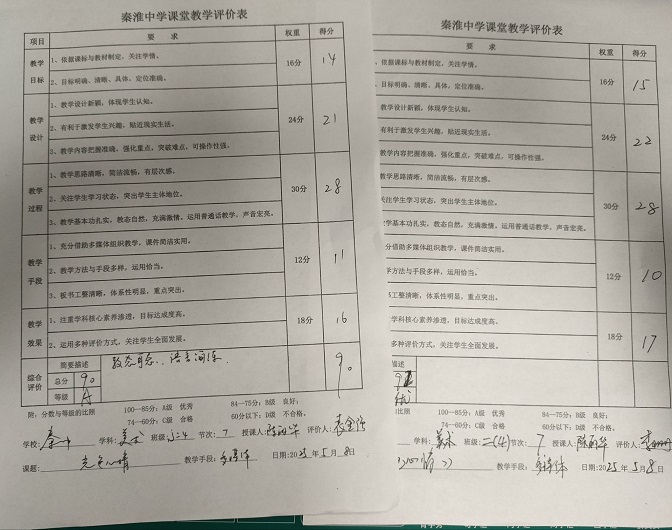 秦淮中学课堂教学评价表
项目 要 求 权重 得分
教学目标 1、依据课标与教材制定，关注学情。 16分 14
2、目标明确、清晰、具体，定位准确。
教学设计 1、教学设计新颖，体现学生认知。 24分 21
2、有利于激发学生兴趣，贴近现实生活。
3、教学内容把握准确，强化重点，突破难点，可操作性强。
教学过程 1、教学思路清晰，简洁流畅，有层次感。 30分 28
2、关注学生学习状态，突出学生主体地位。
3、教学基本功扎实，教态自然，充满激情。运用普通话教学，声音宏亮。
教学手段 1、充分借助多媒体组织教学，课件简洁实用。 12分 11
2、教学方法与手段多样，运用恰当。
3、板书工整清晰，体系性明显，重点突出。
教学效果 1、注重学科核心素养渗透，目标达成度高。 18分 16
2、运用多种评价方式，关注学生全面发展。
综合评价 简要描述 教态自然、语言简练 90
总分 90
等级 A
附：分数与等级的比照 100—85分：A级 优秀 84—75分：B级 良好；
74—60分：C级 合格 60分以下：D级 不合格。
学校： 学科：美术 班级： 节次：7 授课人：陈丽华 评价人：
课题： 教学手段：多媒体 日期：2025年5月8日
秦淮中学课堂教学评价表
要 求 权重 得分
、依据课标与教材制定，关注学情。 16分 15
、目标明确、清晰、具体，定位准确。
教学设计新颖，体现学生认知。 24分 22
有利于激发学生兴趣，贴近现实生活。
教学内容把握准确，强化重点，突破难点，可操作性强。
教学思路清晰，简洁流畅，有层次感。 30分 28
关注学生学习状态，突出学生主体地位。
学基本功扎实，教态自然，充满激情。运用普通话教学，声音宏亮。
分借助多媒体组织教学，课件简洁实用。 12分 10
方法与手段多样，运用恰当。
工整清晰，体系性明显，重点突出。
学科核心素养渗透，目标达成度高。 18分 17
多种评价方式，关注学生全面发展。
描述
优
比照 100—85分：A级 优秀 84—75分：B级 良好；
74—60分：C级 合格 60分以下：D级 不合格。
学科：美术 班级：二(4) 节次：7 授课人：陈丽华 评价人：
教学手段：多媒体 日期：2025年5月8日